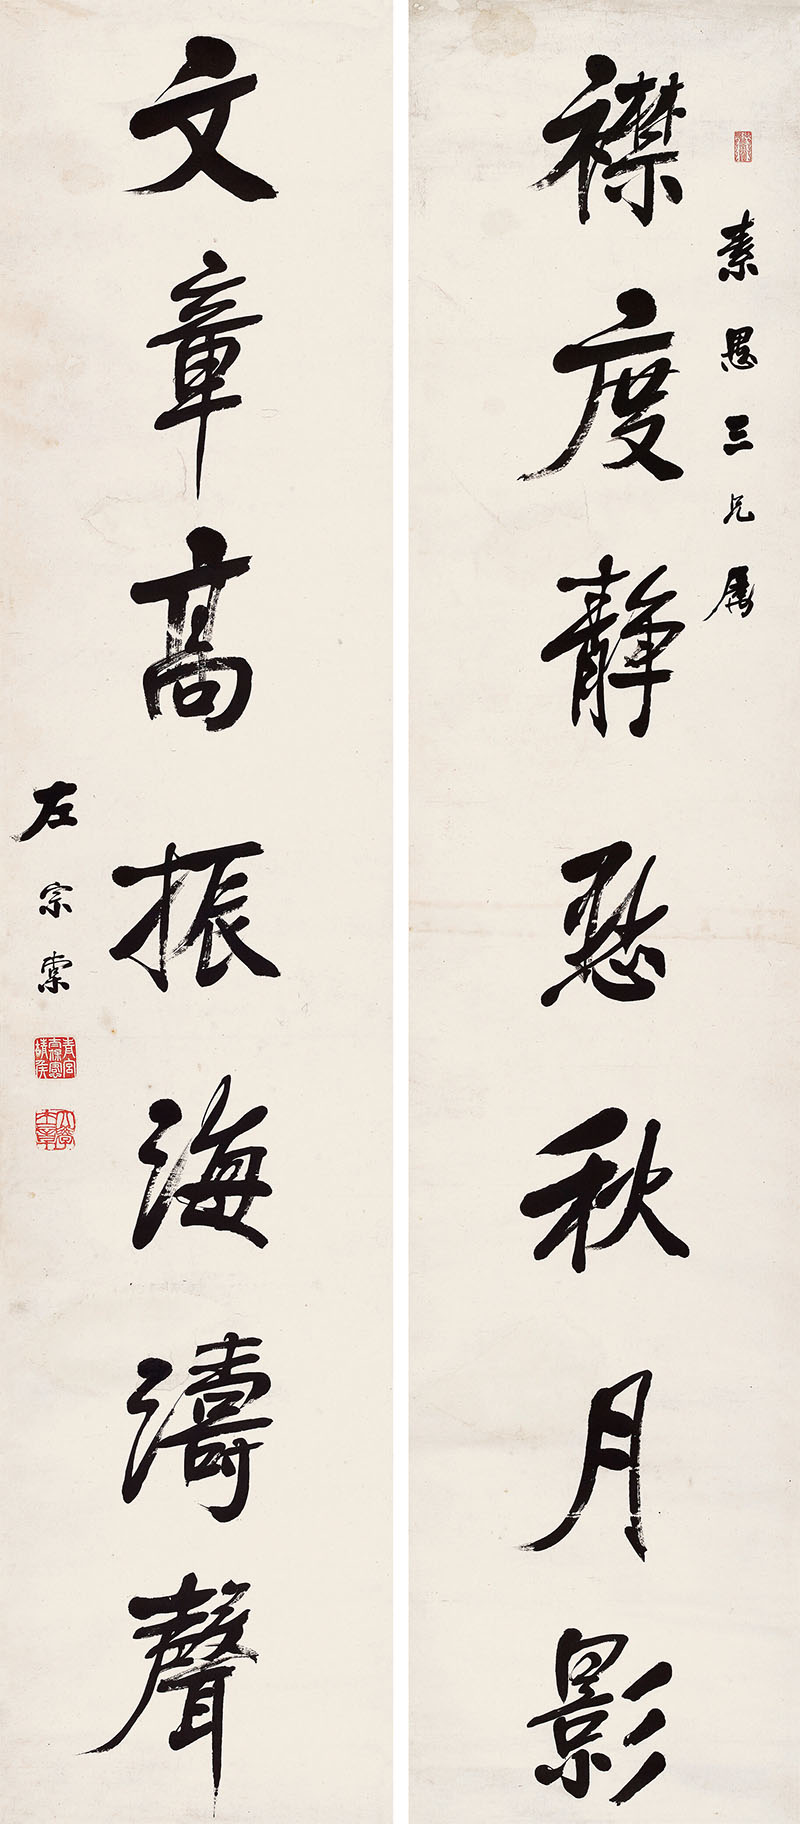 素愚三兄属
襟度靜懸秋月影
文章高振海濤聲
左宗棠
大學士章